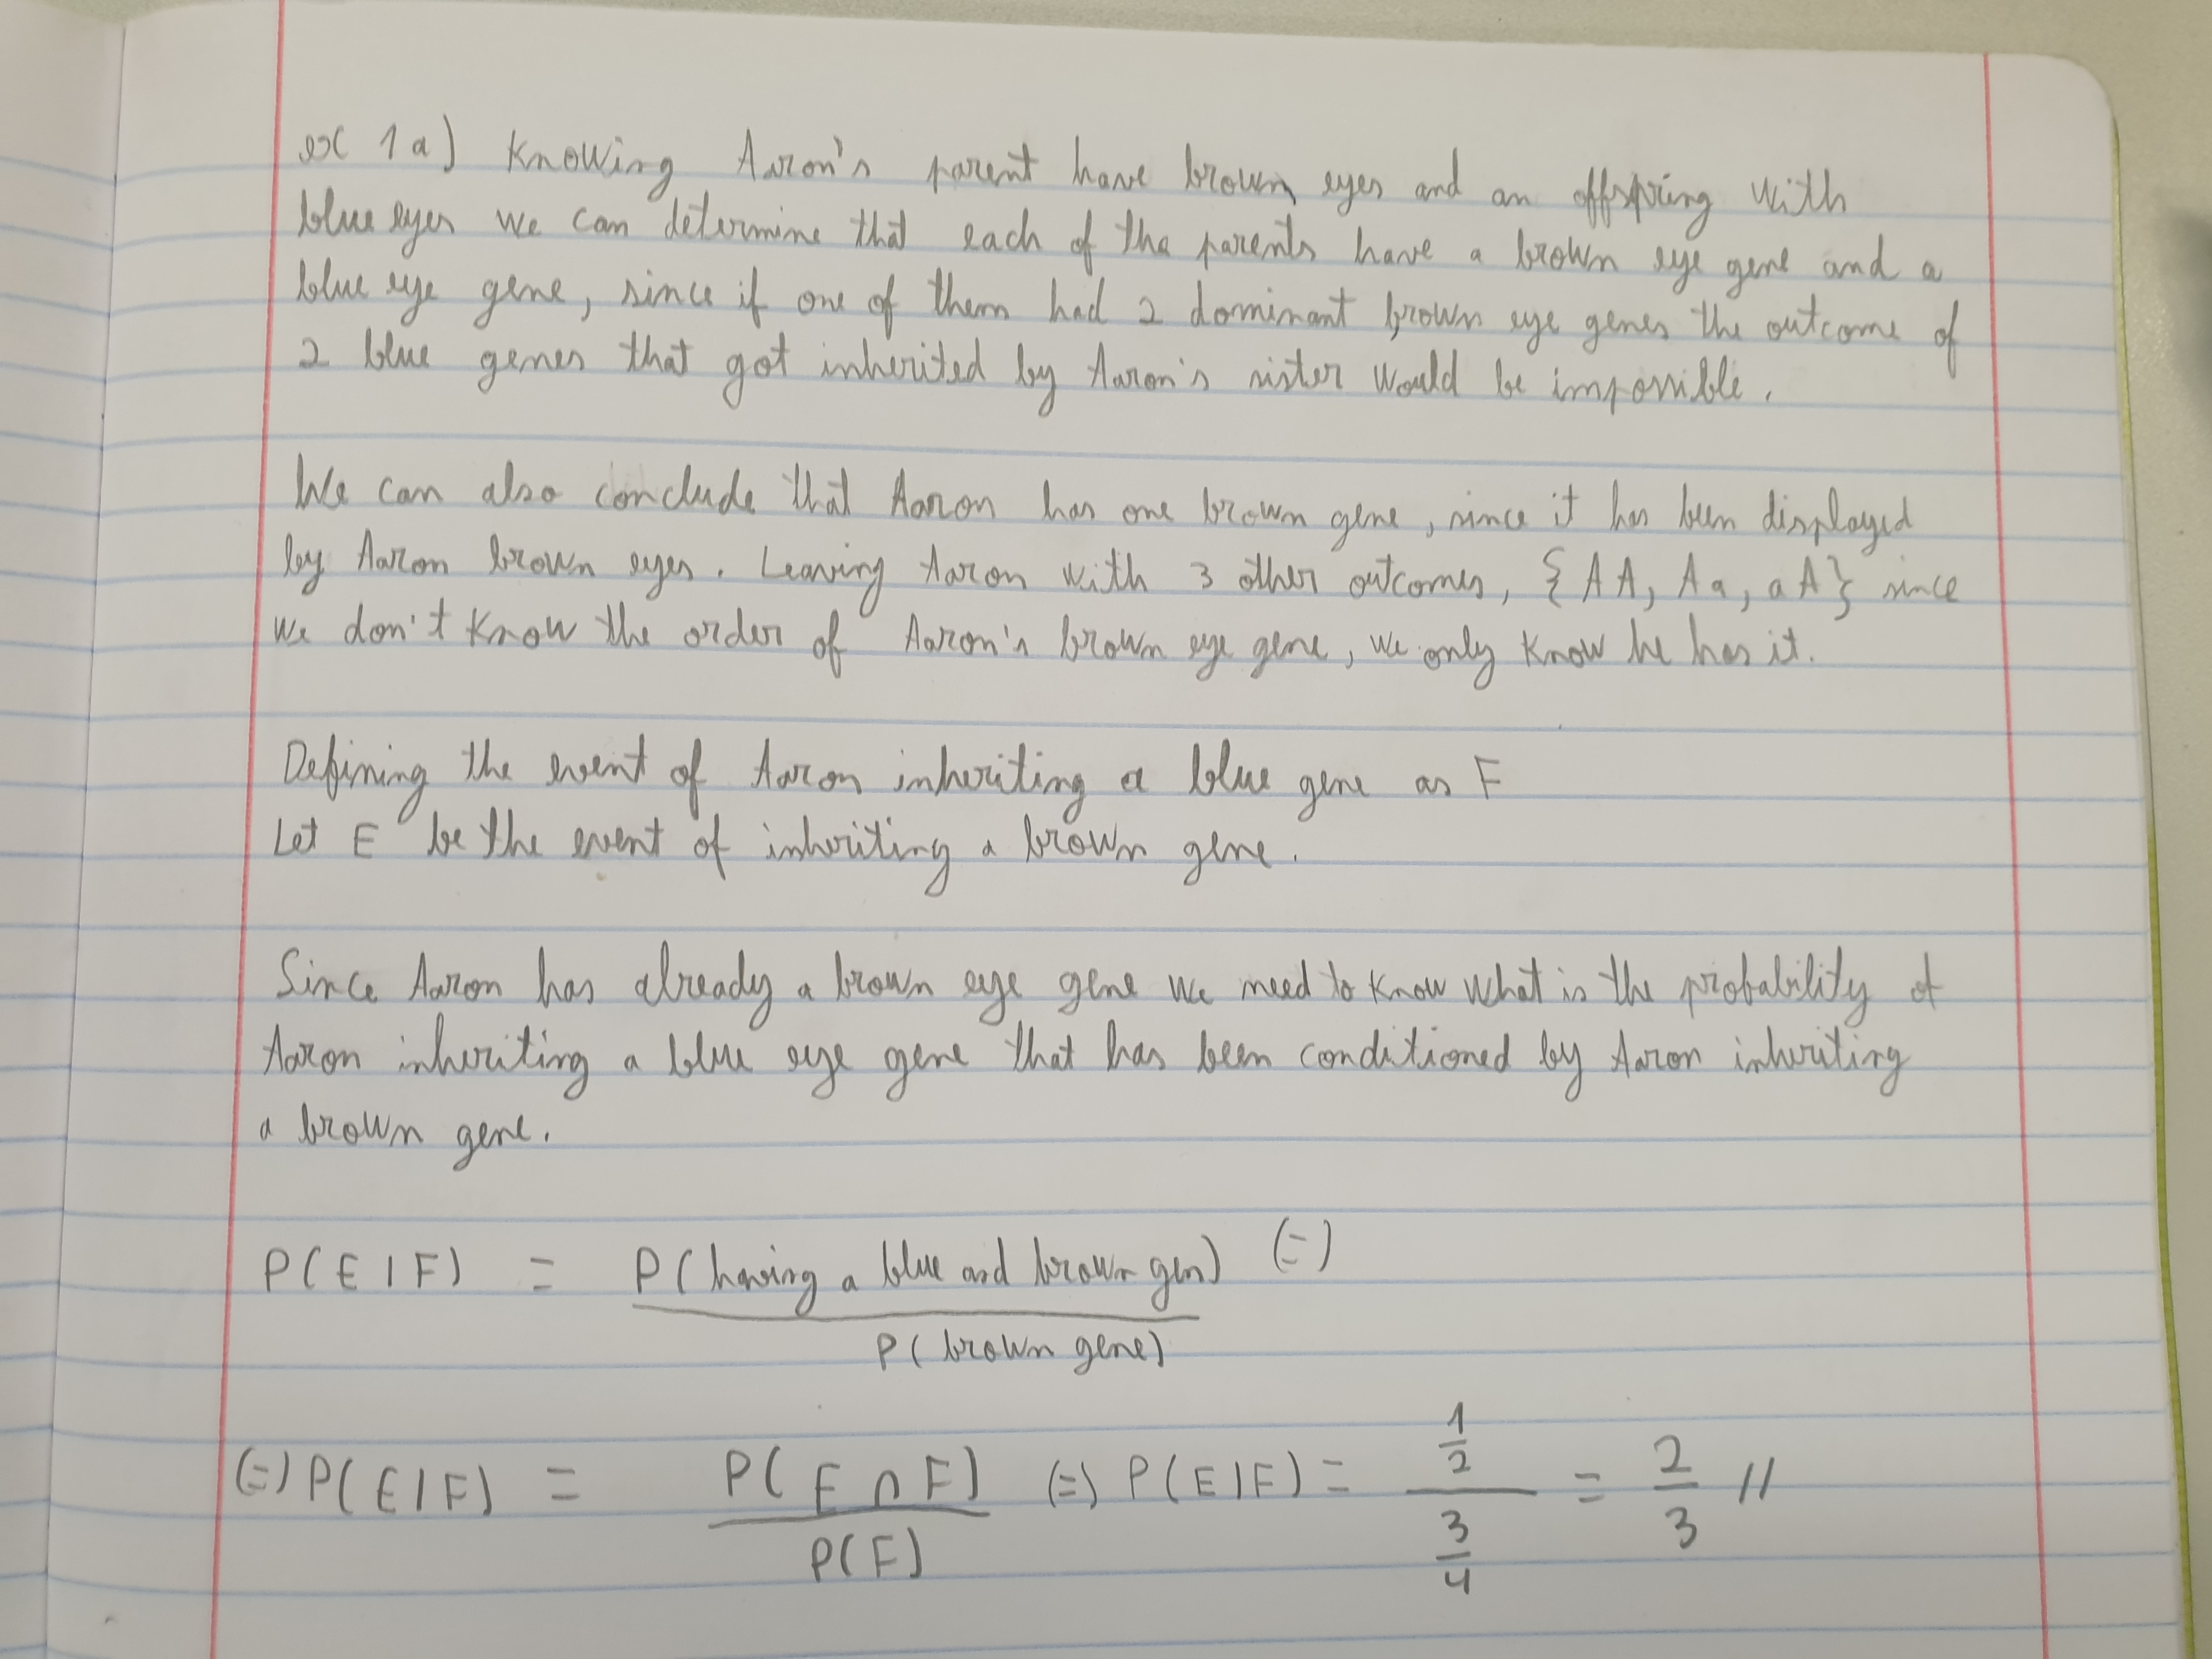 ex 1a) Knowing Aaron's parent have brown eyes and an offspring with
blue eyes we can determine that each of the parents have a brown eye gene and a
blue eye gene, since if one of them had 2 dominant brown eye genes the outcome of
2 blue genes that got inherited by Aaron's sister would be impossible.
We can also conclude that Aaron has one brown gene, since it has been displayed
by Aaron brown eyes. Leaving Aaron with 3 other outcomes, {AA, Aa, aA} since
we don't know the order of Aaron's brown eye gene, we only know he has it.
Defining the event of Aaron inheriting a blue gene as F
Let E be the event of inheriting a brown gene.
Since Aaron has already a brown eye gene we need to know what is the probability of
Aaron inheriting a blue eye gene that has been conditioned by Aaron inheriting
a brown gene.
P(E|F) = P(having a blue and brown gen) / P(brown gene) (=)
(=) P(E|F) = P(E ∩ F) / P(F) (=) P(E|F) = 1/2 / 3/4 = 2/3 //